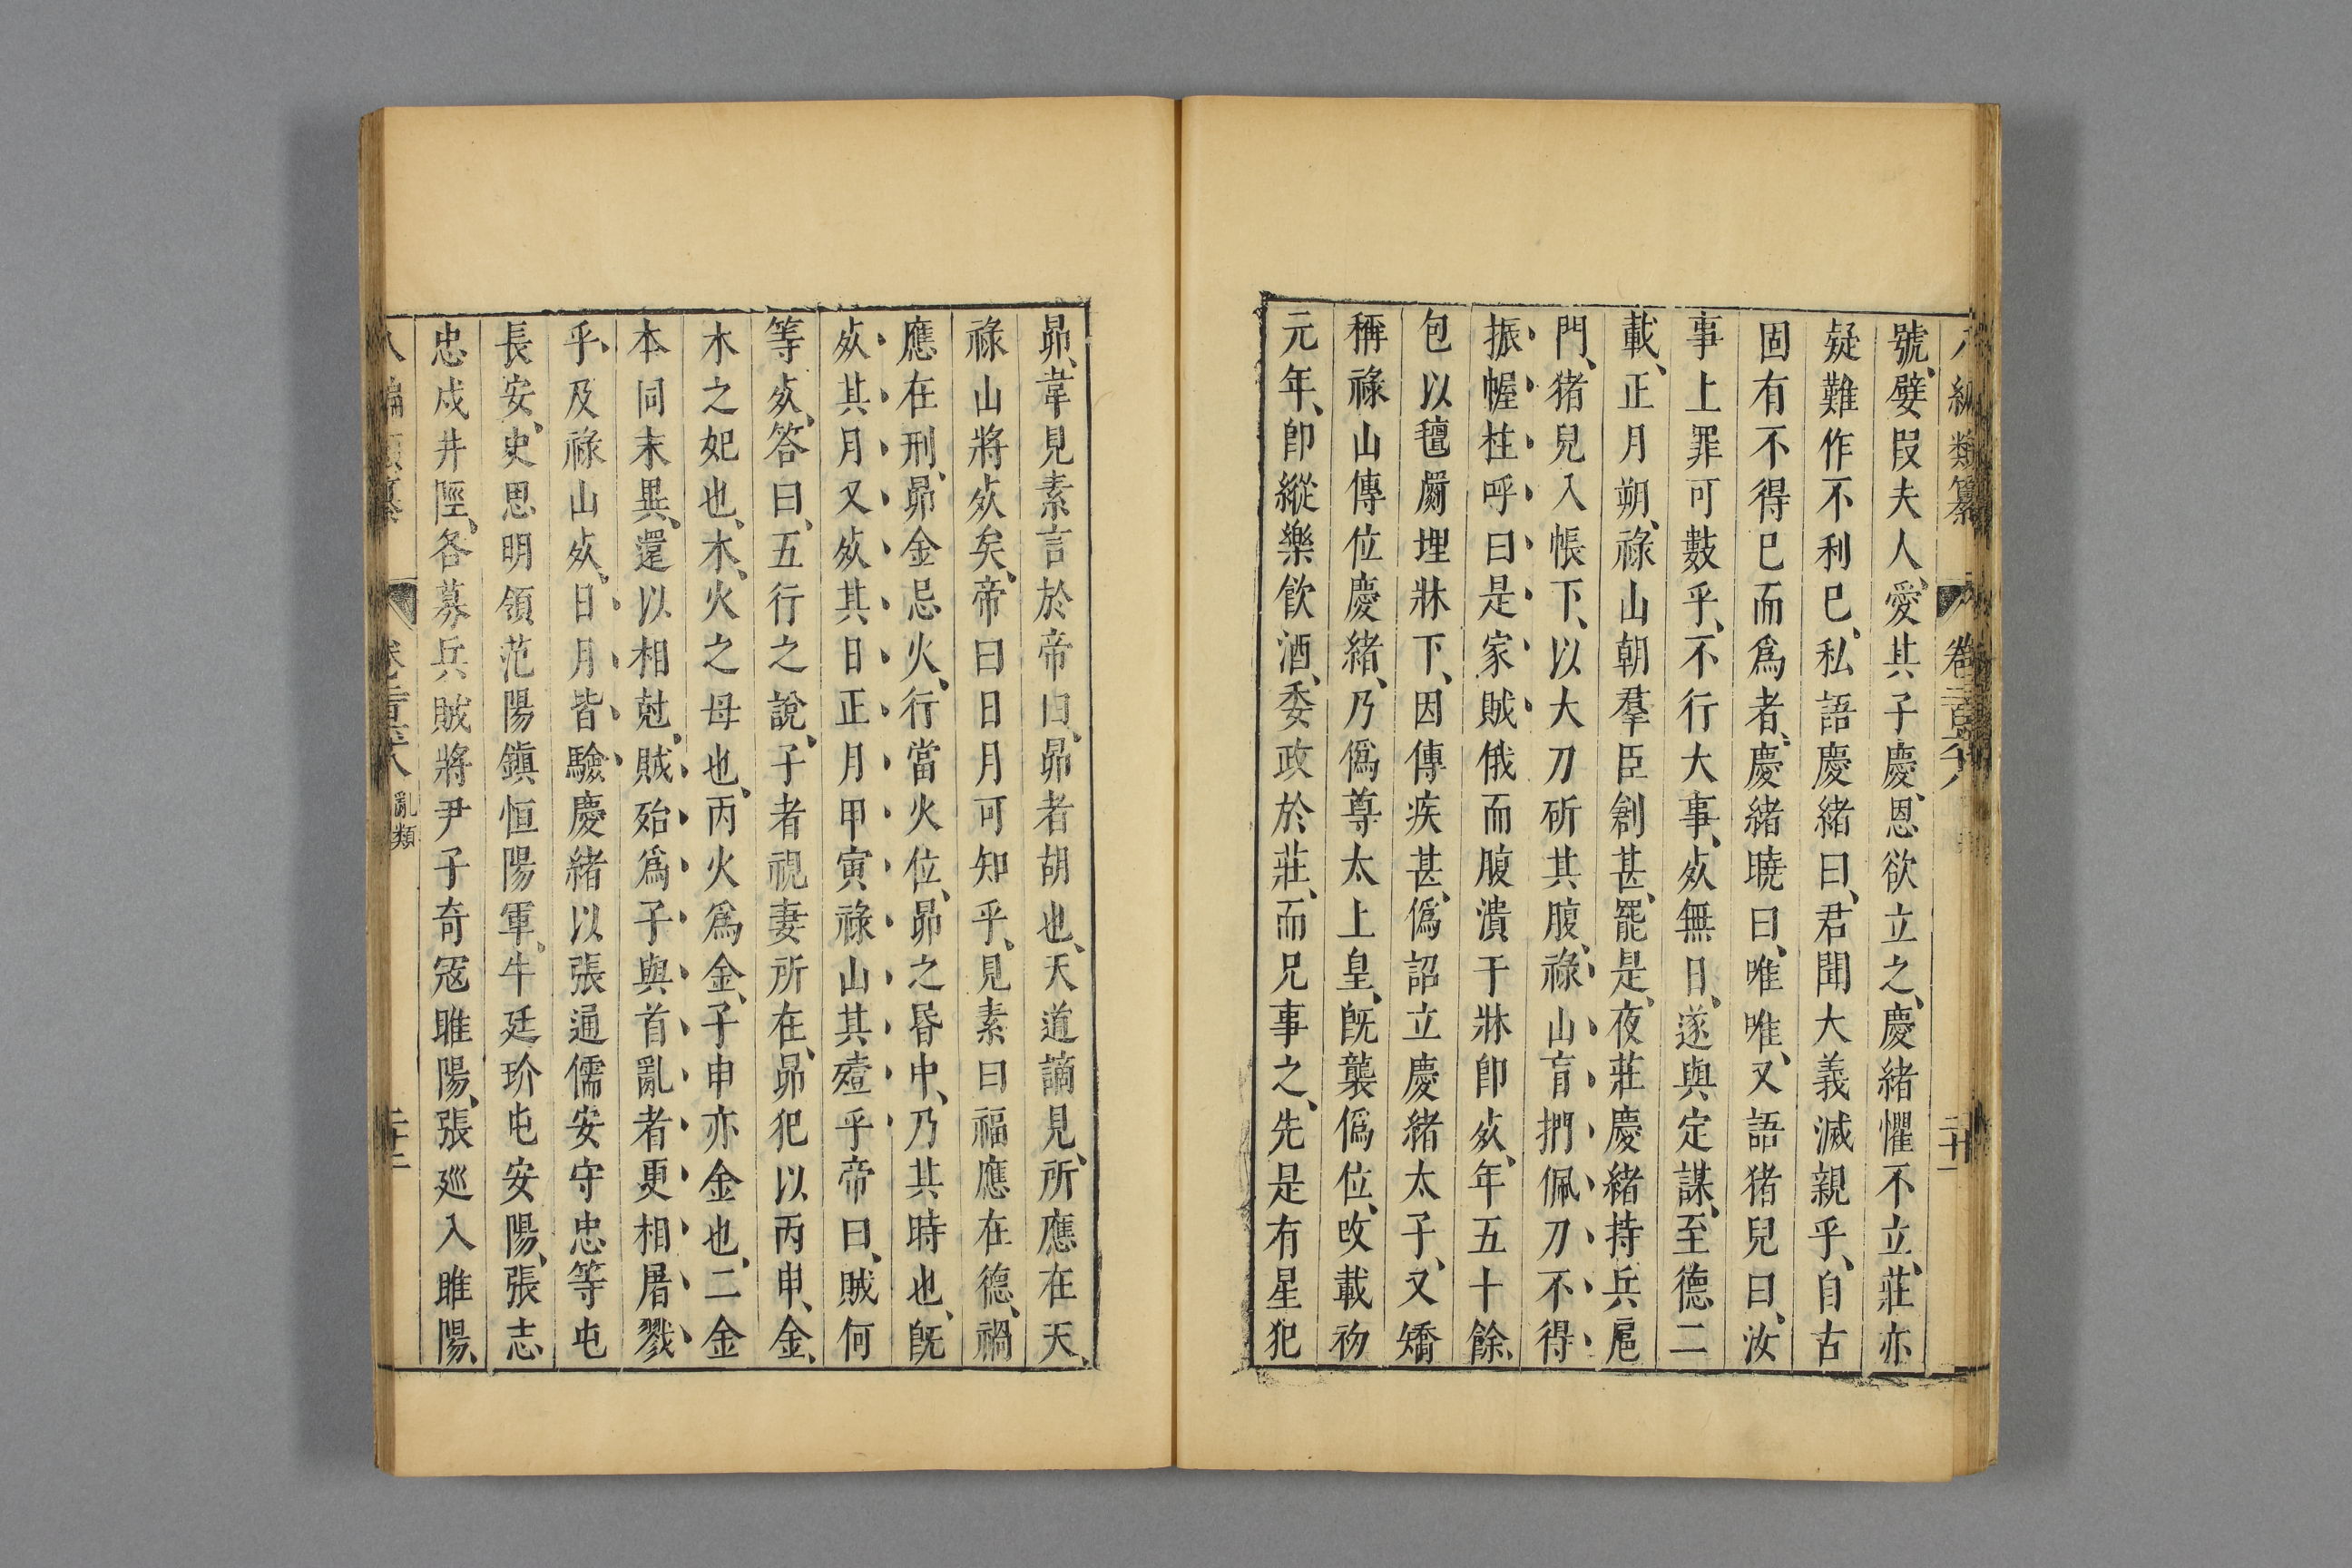 八編類纂 卷二百六十八 二十一
號、嬖叚夫人、愛其子慶、恩欲立之、慶緒懼不立、莊亦
疑難作不利已、私語慶緒曰、君聞大義滅親乎、自古
固有不得已而爲者、慶緒曉曰、唯唯、又語猪兒曰、汝
事上罪可數乎、不行大事、死無日、遂與定謀、至德二
載、正月朔、祿山朝羣臣創甚、罷是、夜莊慶緒持兵扈
門、猪兒入帳下、以大刀斫其腹、祿山盲捫佩刀不得
振幄柱呼曰是家賊俄而腹潰于牀卽死、年五十餘、
包以氊罽埋牀下、因傳疾甚、僞詔立慶緒太子、又矯
稱祿山傳位慶緒、乃僞尊太上皇、旣襲僞位、改載初
元年、卽縱樂飲酒、委政於莊、而兄事之、先是有星犯
昴、韋見素言於帝曰、昴者胡也、天道謫見、所應在天、
祿山將死矣、帝曰日月可知乎、見素曰福應在德、禍
應在刑、昴金忌火、行當火位、昴之昏中、乃其時也、旣
死其月又死其日正月甲寅祿山其殪乎帝曰、賊何
等死、答曰、五行之說、子者視妻所在、昴犯以丙申、金、
木之妃也、木、火之母也、丙火爲金、子申亦金也、二金
本同末異、還以相尅、賊殆爲子與首亂者更相屠戮
乎、及祿山死、日月皆驗慶緒以張通儒安守忠等屯
長安、史思明領范陽鎮恒陽軍、牛廷玠屯安陽、張志
忠戍井陘、各募兵賊將尹子奇寇睢陽、張廵入睢陽、
八編類纂 卷二百六十八 亂類 二十二